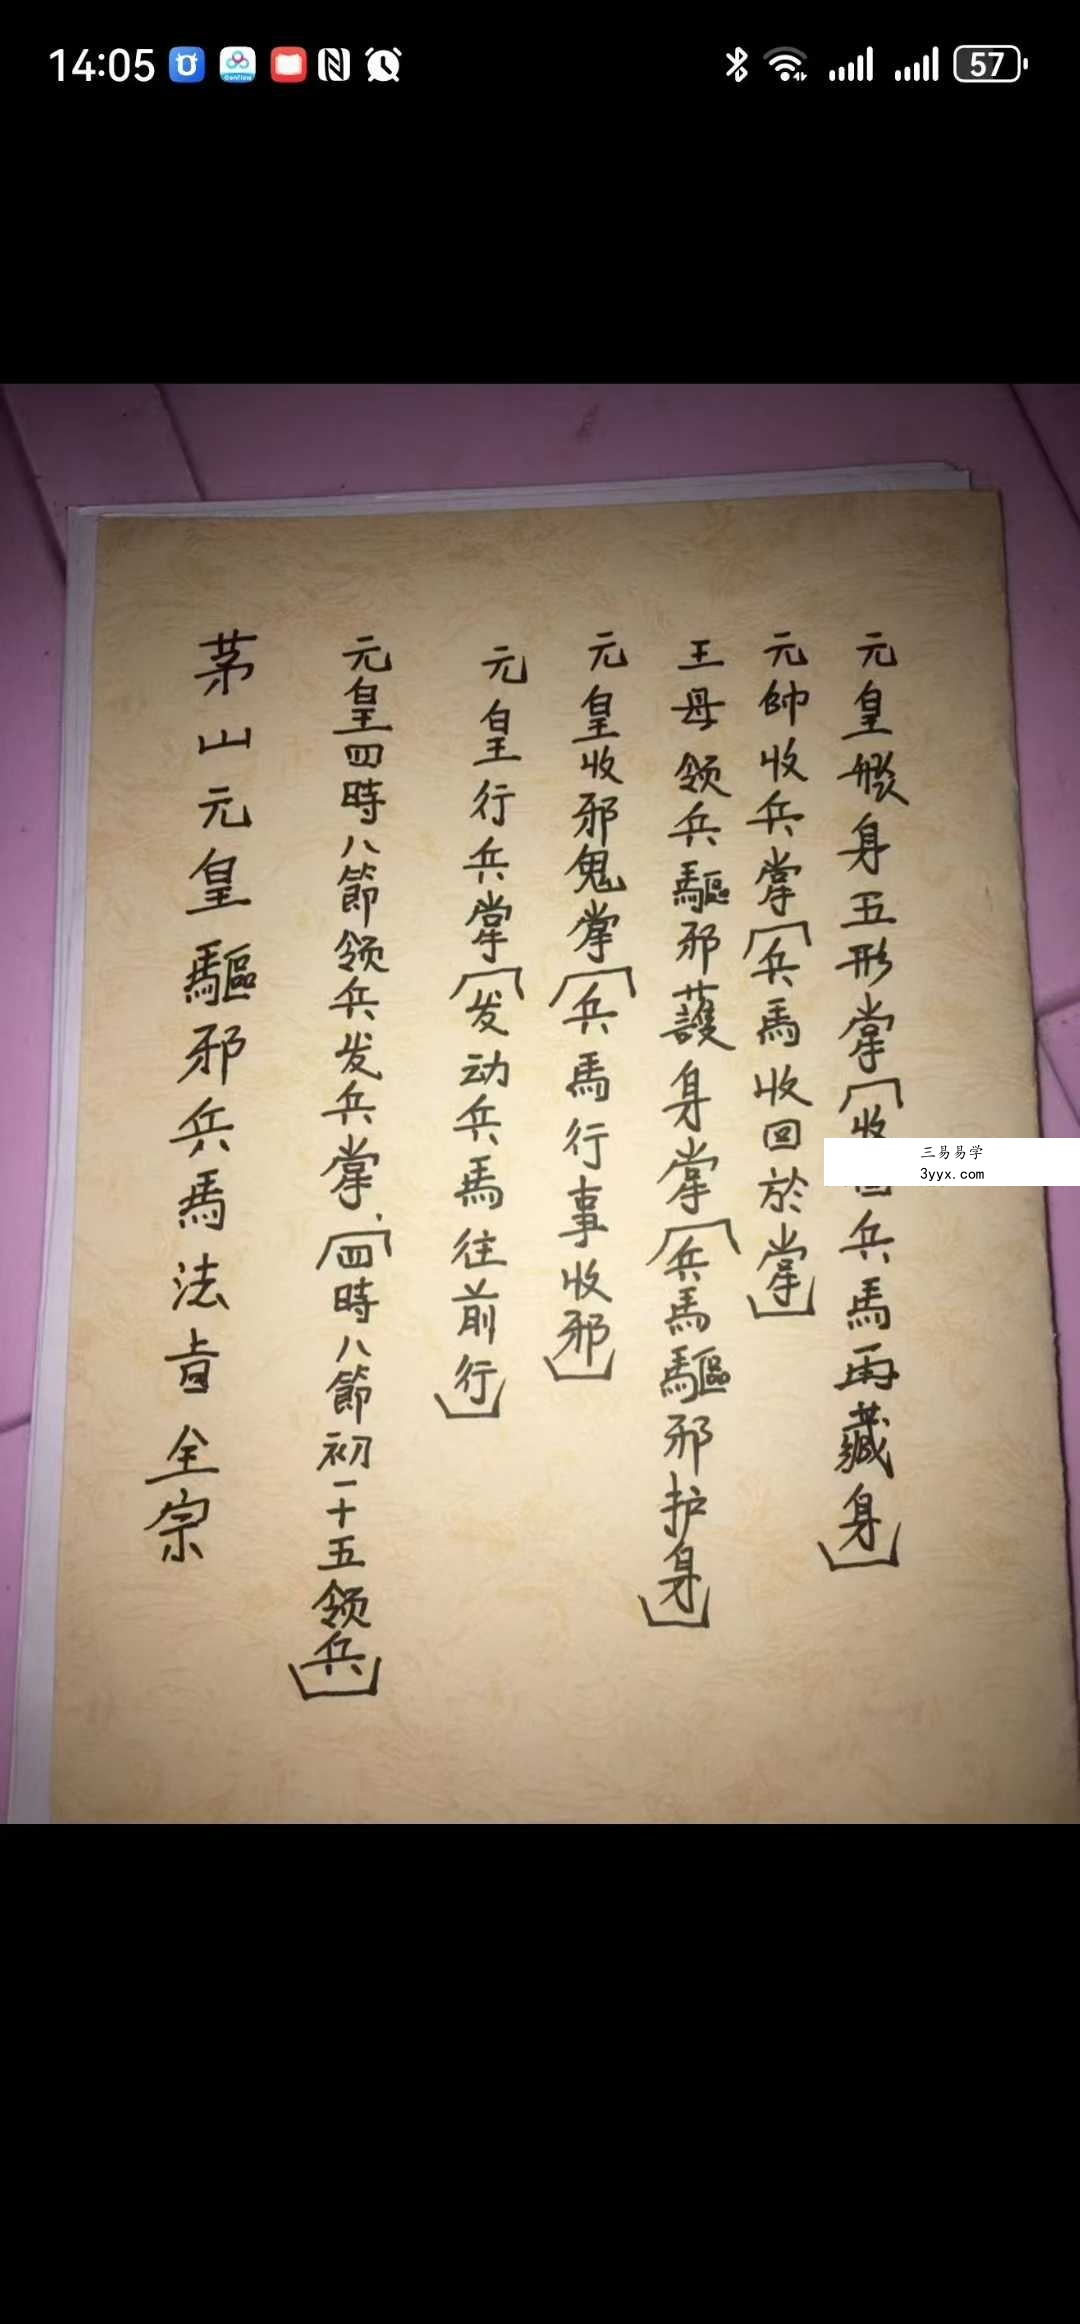 14:05
57
元皇般身五形掌「收回兵馬再藏身」
元帥收兵掌「兵馬收回於掌」
王母领兵驅邪護身掌「兵馬驅邪护身」
元皇收邪鬼掌「兵馬行事收邪」
元皇行兵掌「发动兵馬往前行」
元皇四時八節领兵发兵掌、「四時八節初一十五领兵」
茅山元皇驅邪兵馬法旨全宗
三易易学
3yyx.com